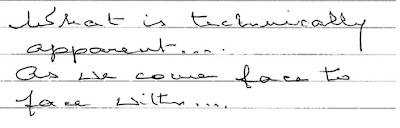 What is technically
apparent....
As we come face to
face with....